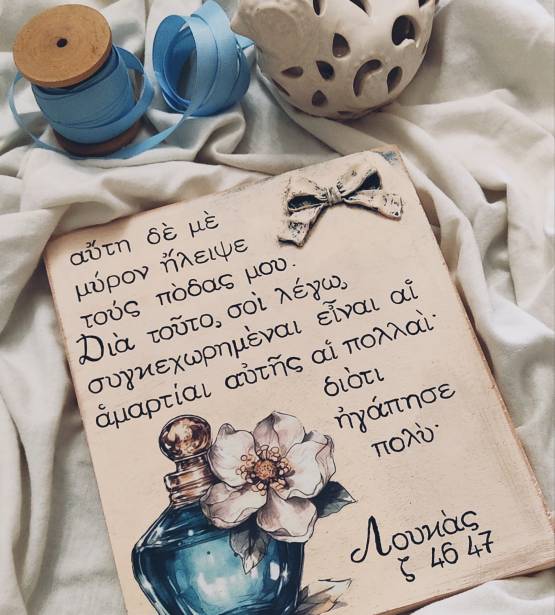 αὕτη δὲ μὲ
μύρον ἤλειψε
τούς πὸδας μου.
Διὰ τοῦτο, σοὶ λέγω,
συγκεχωρημὲναι εἶναι αἵ
ἁμαρτίαι αὐτῆς αἵ πολλαὶ·
διὸτι
ἠγάπησε
πολὺ·
Λουκὰς
ζ 46 47